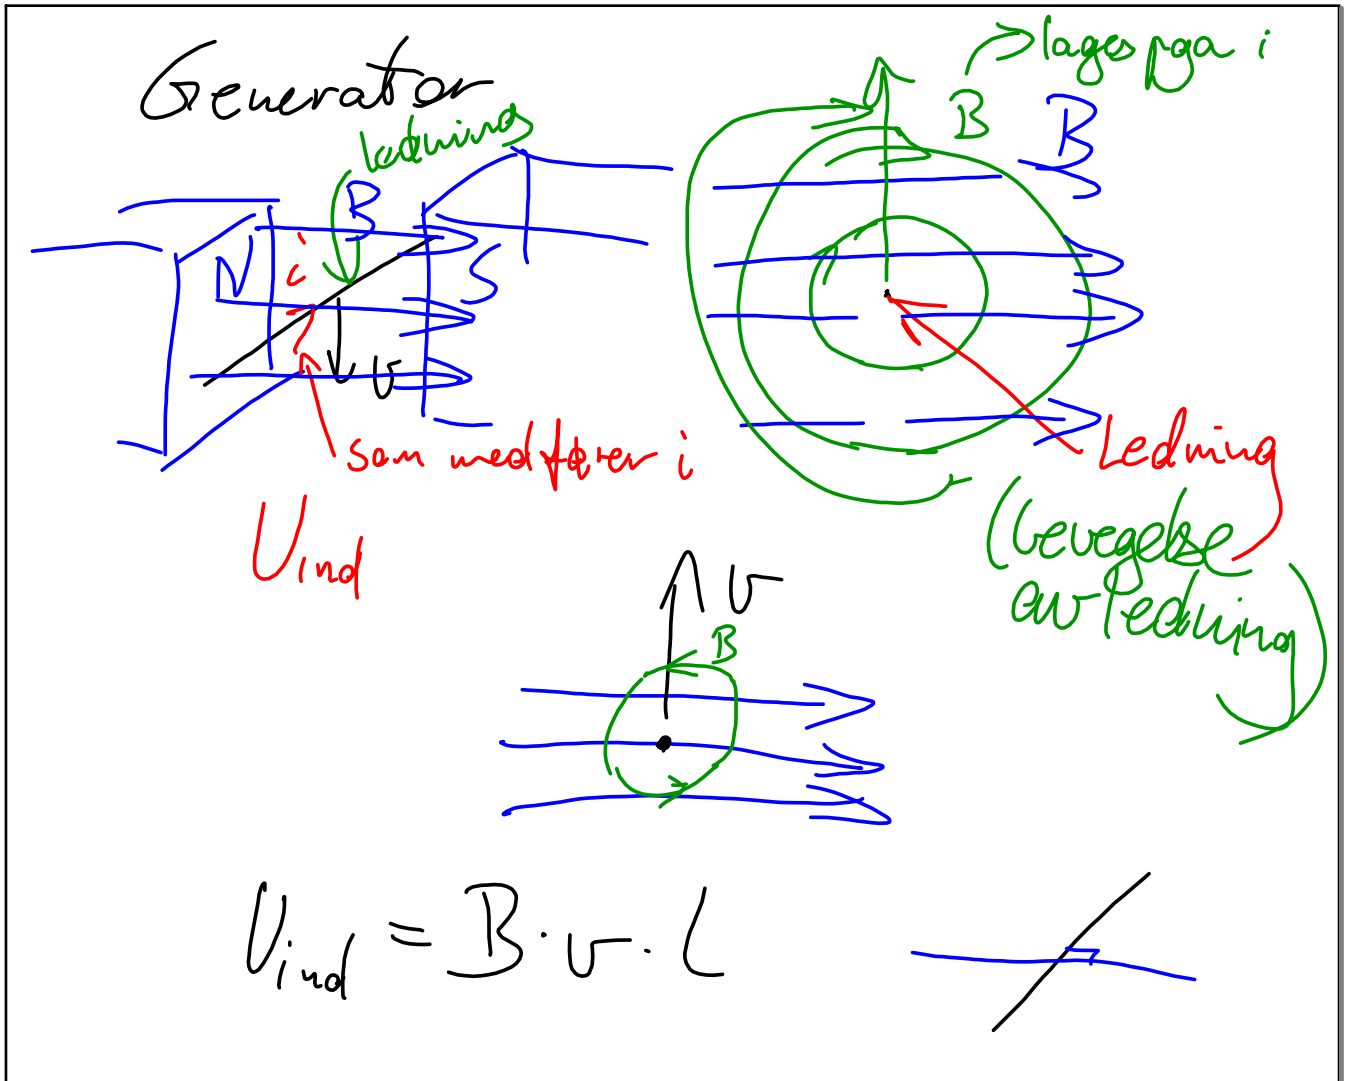 Generator
ledning
B
N
i
S
v
som medfører i
Uind
lages pga i
B
B
Ledning
(bevegelse
av ledning
v
B
Uind = B · v · L